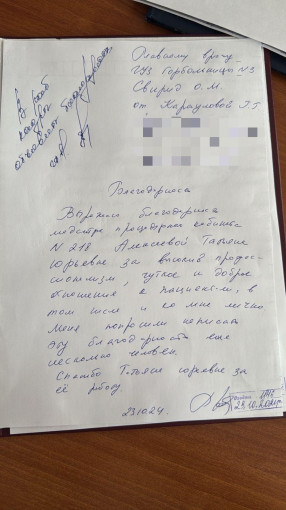 Главному врачу
ГУЗ Горбольница №3
Свирид О.М.
от Карауловой Г.Г
объявить благодарность
Благодарность
Выражаю благодарность
медсестре процедурного кабинета
N 218 Алексеевой Татьяне
Юрьевне за высокий профес-
сионализм, чуткое и доброе
отношение к пациентам, в
том числе и ко мне лично
Меня попросили написать
эту благодарность еще
несколько человек.
Спасибо Татьяне Юрьевне за
её работу
23.10.24.
23.10.2024